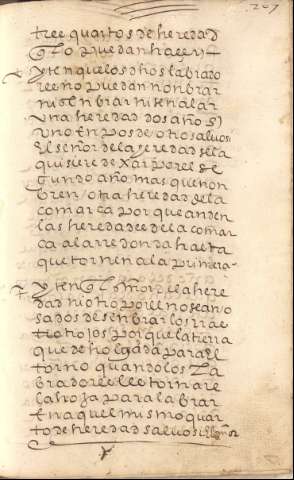 207
tree quartos de heredad
lo puedan haçer
yten que los d hos labrado
ree no puedan nonbrar
ni senbrar ni señalar
una heredad dos años
uno en pos de otro salvo si
el señor de la eredad ella
quisiere dexar por el se
gundo año. mas que non
bren / otra heredad de la
comarca porque anden
las heredadee de la comar
ca al arredonda hasta
que tornen a la primera
yten que la here
dad ni otro por el no sean o
sados de senbrar los
porque la tierra
quede holgada para el
torno quando los la
bradoree lee tornare
la hoja para labrar
en aquel mismo quar
to de heredad salvo si el señor